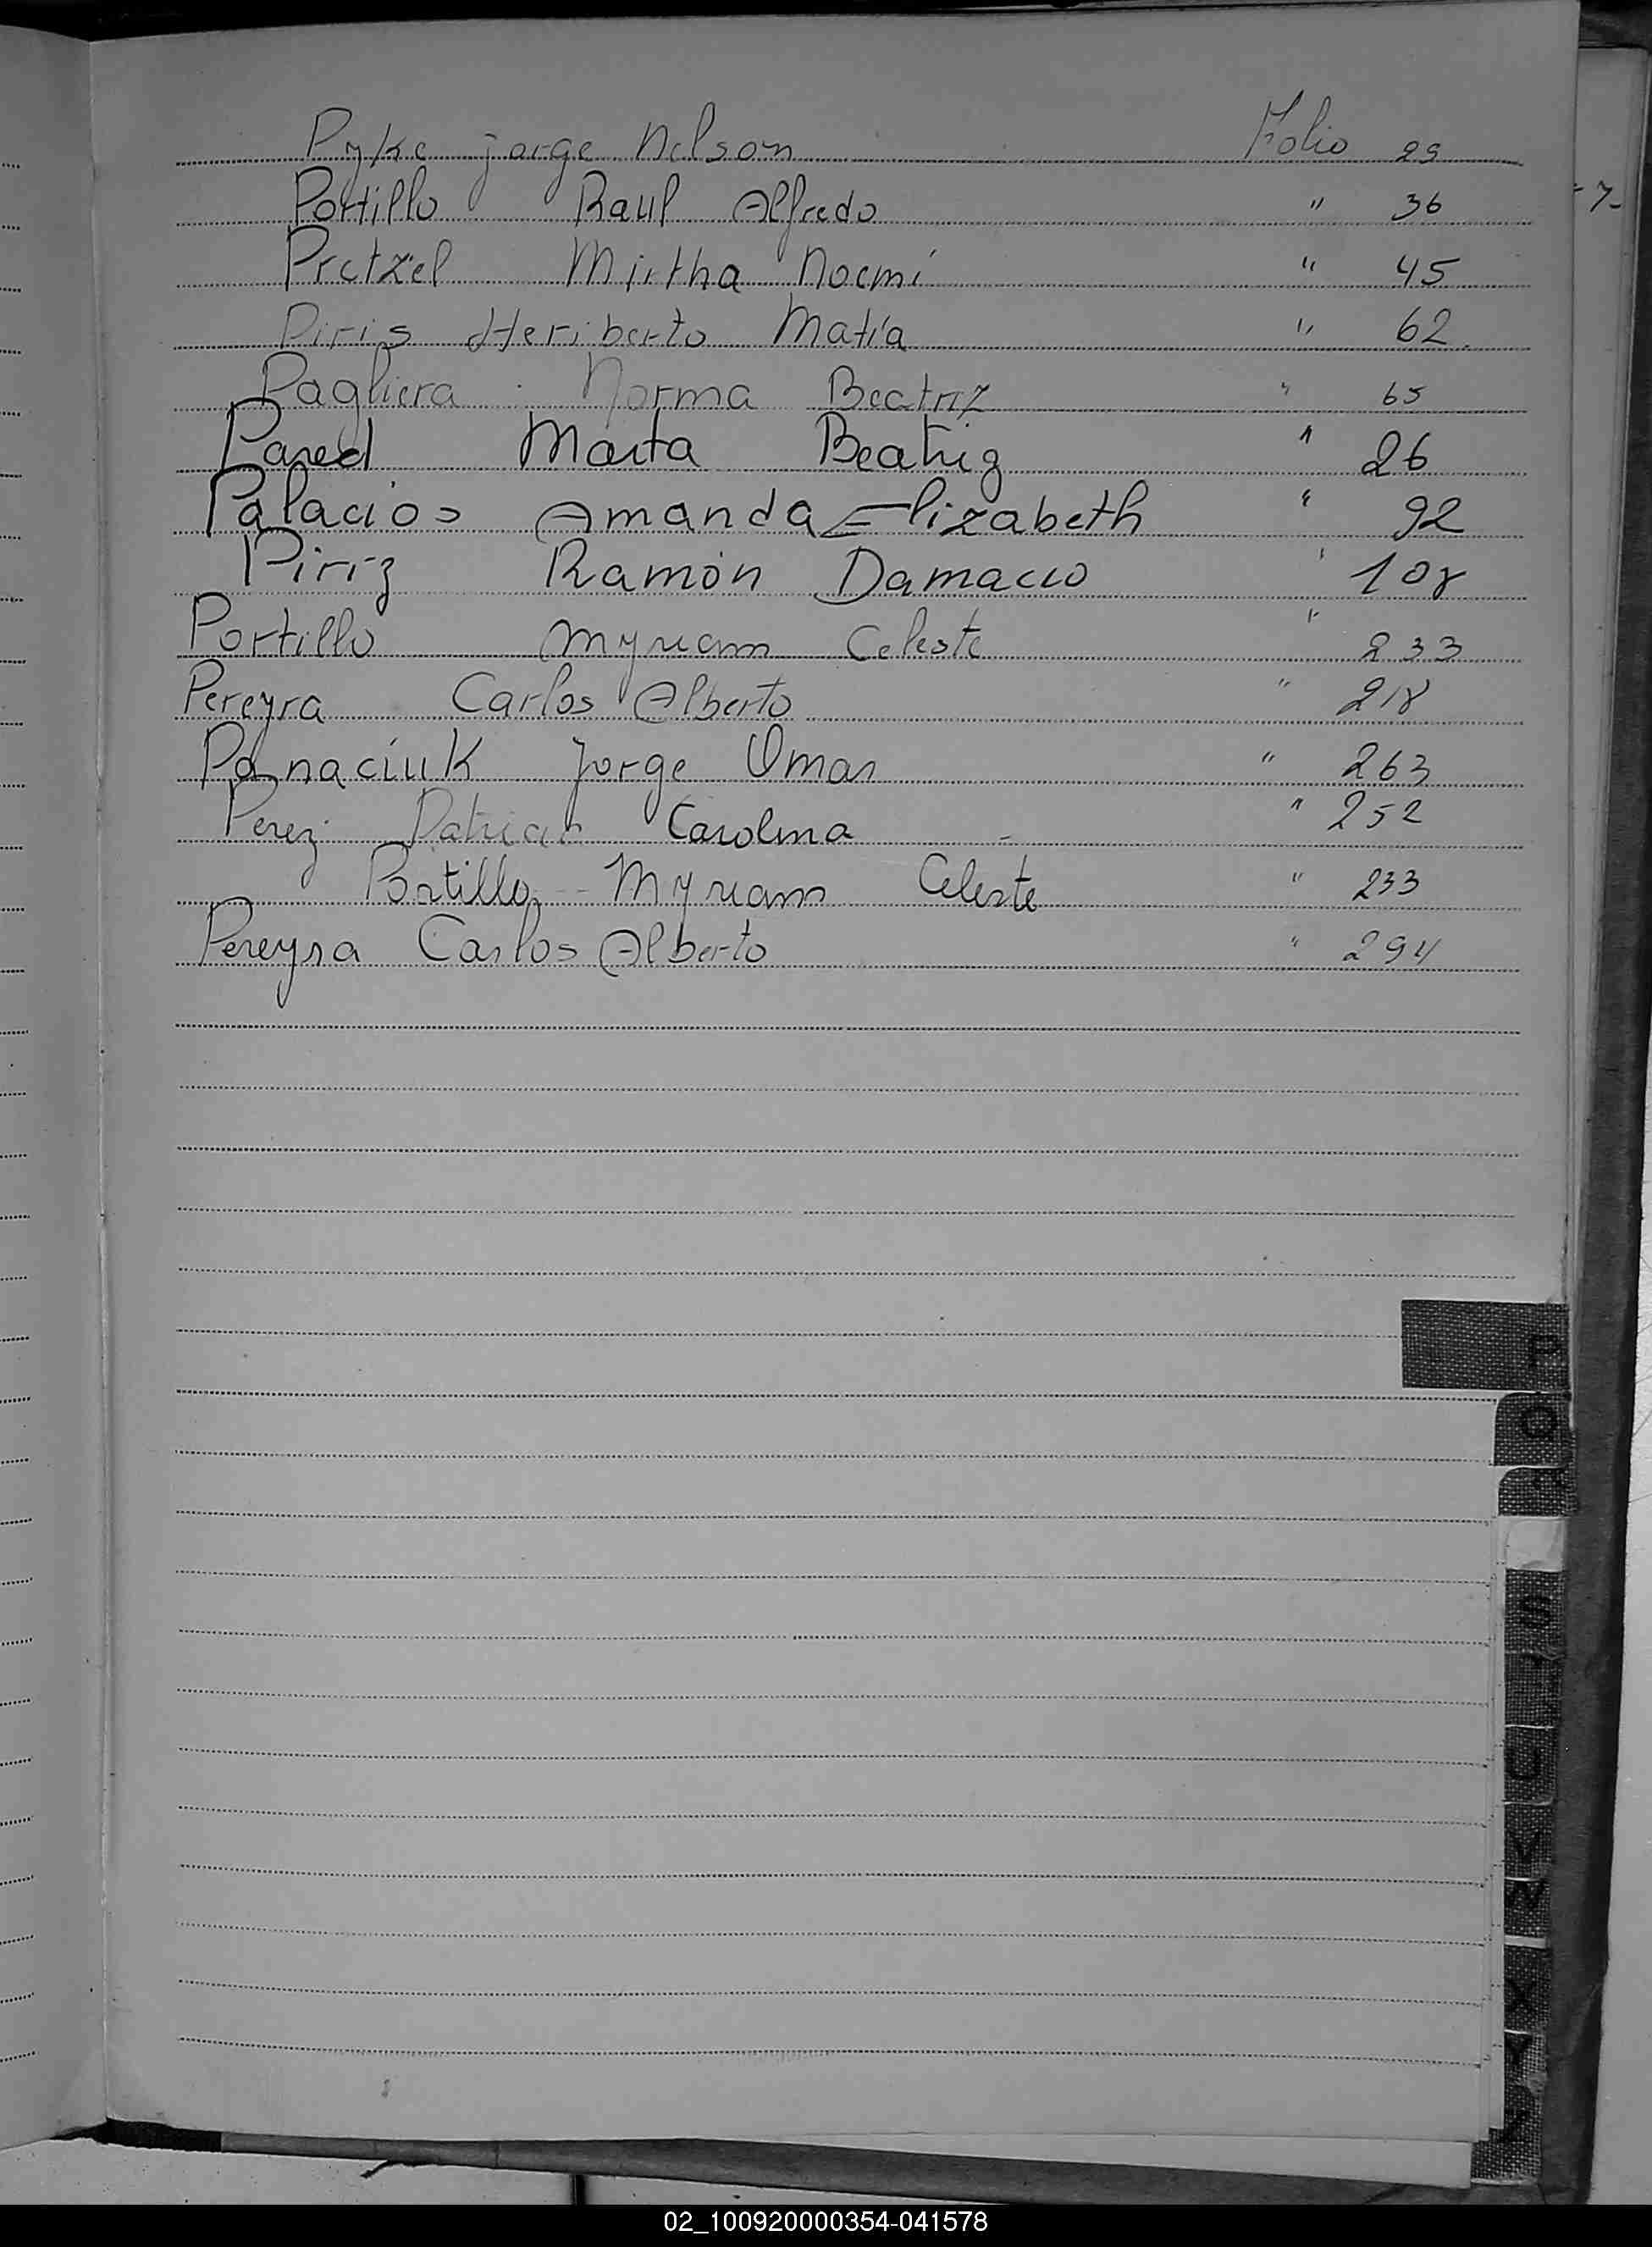 Pyke jorge Nelson Folio 29
Portillo Raul Alfredo " 36
Pretzel Mirtha Noemí " 45
Piris Heriberto Matía " 62.
Pagliera Norma Beatriz " 65
Pared Marta Beatriz " 26
Palacios Amanda Elizabeth " 92
Piriz Ramón Damacio " 108
Portillo Myriam Celeste " 233
Pereyra Carlos Alberto " 218
Panaciuk Jorge Omar " 263
Perez Patricia Carolina - " 252
Portillo Myriam Celeste " 233
Pereyra Carlos Alberto " 294
P
Q
S
U
V
W
X
Y
02_100920000354-041578